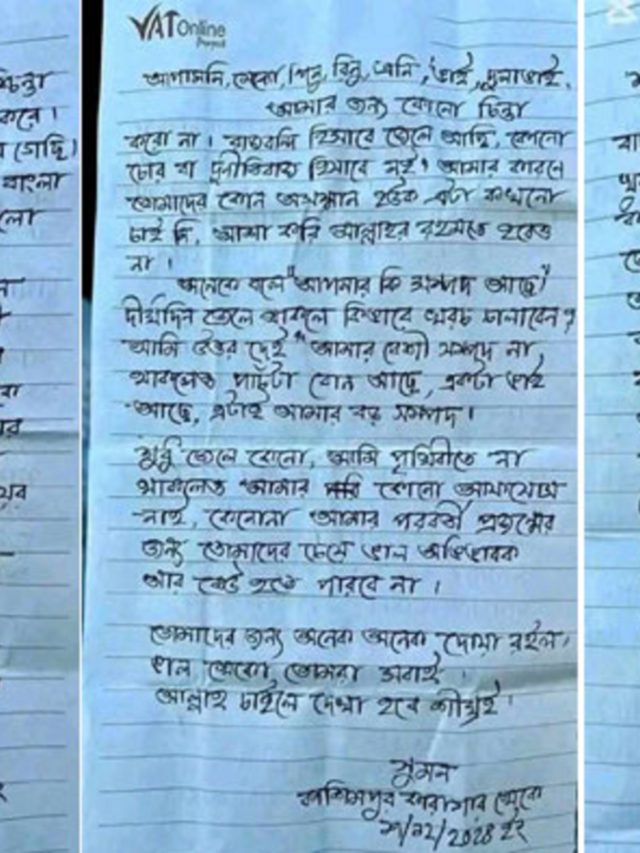 VAT Online
Project
আপামনি, কেকো, শিলু, রিনু, এমি, ভাই, দুলাভাই,
আমার জন্য কোনো চিন্তা
করো না। রাজবন্দি হিসাবে জেলে আছি, কোনো
চোর বা দুর্নীতিবাজ হিসাবে নই। আমার কারনে
তোমাদের কোন অসম্মান হউক এটা কখনো
চাই নি, আশা করি আল্লাহর রহমতে হবেও
না।
অনেকে বলে "আপনার কি সম্পদ আছে"
দীর্ঘদিন জেলে থাকলে কিভাবে খরচ চালাবেন?
আমি উত্তর দেই "আমার বেশী সম্পদ না
থাকলেও পাঁচটা বোন আছে, একটা ভাই
আছে, এটাই আমার বড় সম্পদ।
শুধু জেলে কেনো, আমি পৃথিবীতে না
থাকলেও আমার কোনো আফসোস
নাই, কেনোনা আমার পরবর্তী প্রজন্মের
জন্য তোমাদের চেয়ে ভাল অভিভাবক
আর কেউ হতে পারবে না।
তোমাদের জন্য অনেক অনেক দোয়া রইল।
ভাল থেকো তোমরা সবাই।
আল্লাহ চাইলে দেখা হবে শীঘ্রই।
সুমন
কাশিমপুর কারাগার থেকে
চিন্তা
করে।
গেছি)
বাংলা